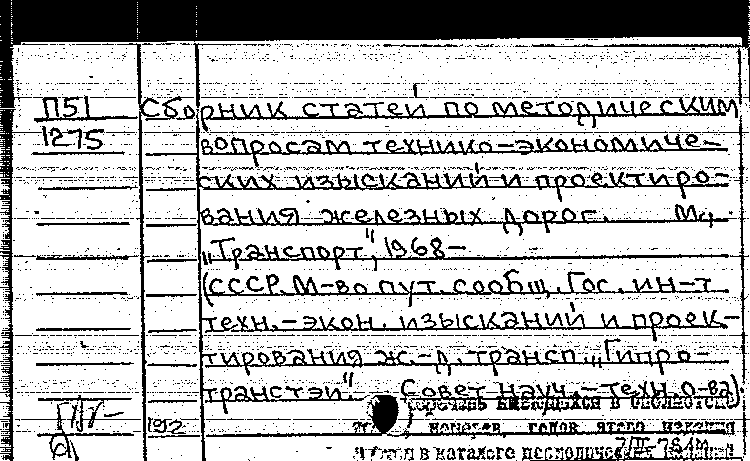 П51 Сборник статей по методическим
1275 вопросам технико-экономиче-
ских изысканий и проектиро-
вания железных дорог. М.,
„Транспорт", 1968-
(СССР. М-во пут. сообщ. Гос. ин-т
техн.-экон. изысканий и проек-
тирования ж.-д. трансп. „Гипро-
транстэи". Совет науч.-техн. о-ва).
в библиотеке
номеров, годов этого издания
в каталоге периодических изданий